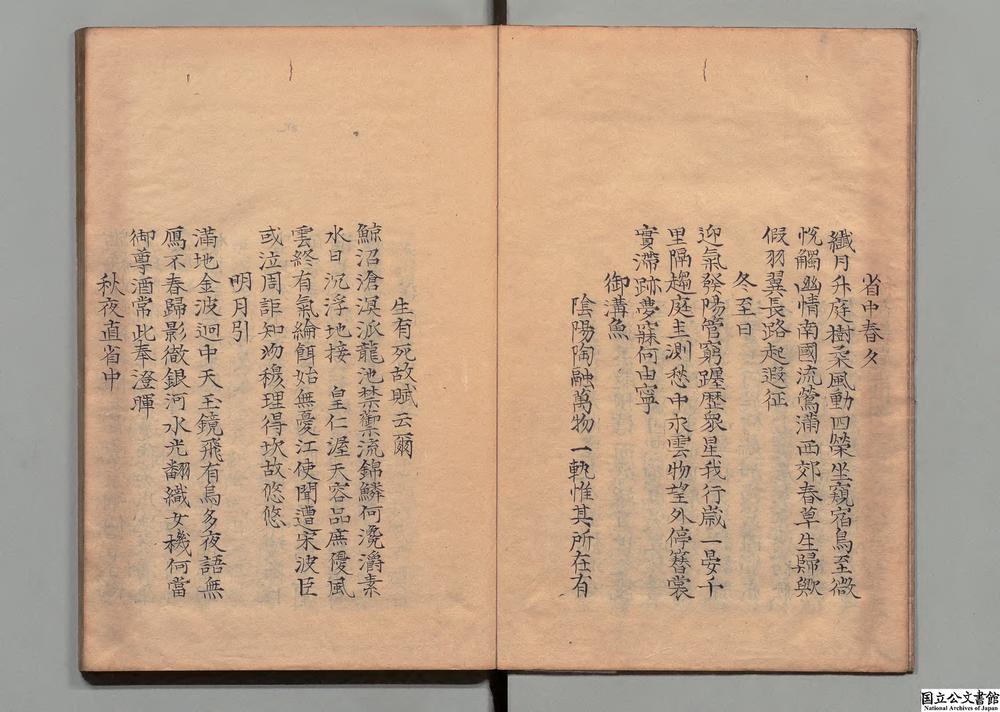 省中春夕
纖月升庭樹柔風動四榮坐窺宿鳥至微
怳觸幽情南國流鶯滿西郊春草生歸歟
假羽翼長路起遐征
冬至日
迎氣發陽管窮躔歷衆星我行歲一晏千
里隔趨庭圭測愁中永雲物望外停簪裳
實滯跡夢寐何由寧
御溝魚
陰陽陶融萬物一軌惟其所在有
生有死故賦云爾
鯨沼滄溟派龍池禁籞流錦鱗何瀺灂素
水日沉浮地接 皇仁渥天容品庶優風
雲終有氣綸餌始無憂江使聞遭宋波臣
或泣周詎知物穆理得坎故悠悠
明月引
滿地金波迥中天玉鏡飛有烏多夜語無
鴈不春歸影徹銀河水光翻織女機何當
御尊酒常此奉澄暉
秋夜直省中
国立公文書館
National Archives of Japan